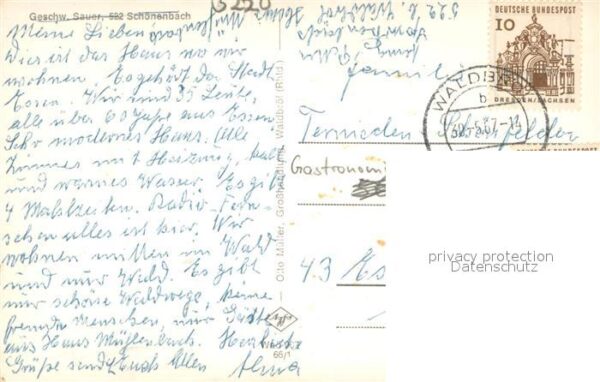 Geschw. Sauer, 522 Schönenbach
5220
Meine Lieben
Dies ist das Haus wo wir
wohnen. Es gehört der Stadt
Essen. Wir sind 35 Leute,
alle über 60 Jahre aus Essen
Sehr modernes Haus. Alle
Zimmer mit Heizung, kalt
und warmes Wasser. Es gibt
4 Mahlzeiten. Radio - Fern-
sehen alles ist hier. Wir
wohnen mitten im Wald
und nur Wald. Es gibt
nur schöne Waldwege, keine
fremden Menschen, nur Gäste
aus Haus Mühlenbach. Herzliche
Grüße sendet Euch Allen
Alma
Otto Müller, Großhandlung, Waldbröl (Rhld.)
66/1
DEUTSCHE BUNDESPOST
10
DRESDEN/SACHSEN
WALDBRÖL
b
Familie
Gastronom
43 Es
privacy protection
Datenschutz